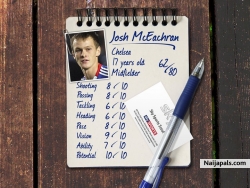 Josh McEachran
Chelsea
17 years old
Midfielder
62/80
Shooting 8/10
Passing 8/10
Tackling 6/10
Heading 6/10
Pace 8/10
Vision 9/10
Ability 7/10
Potential 10/10
Naijapals.com